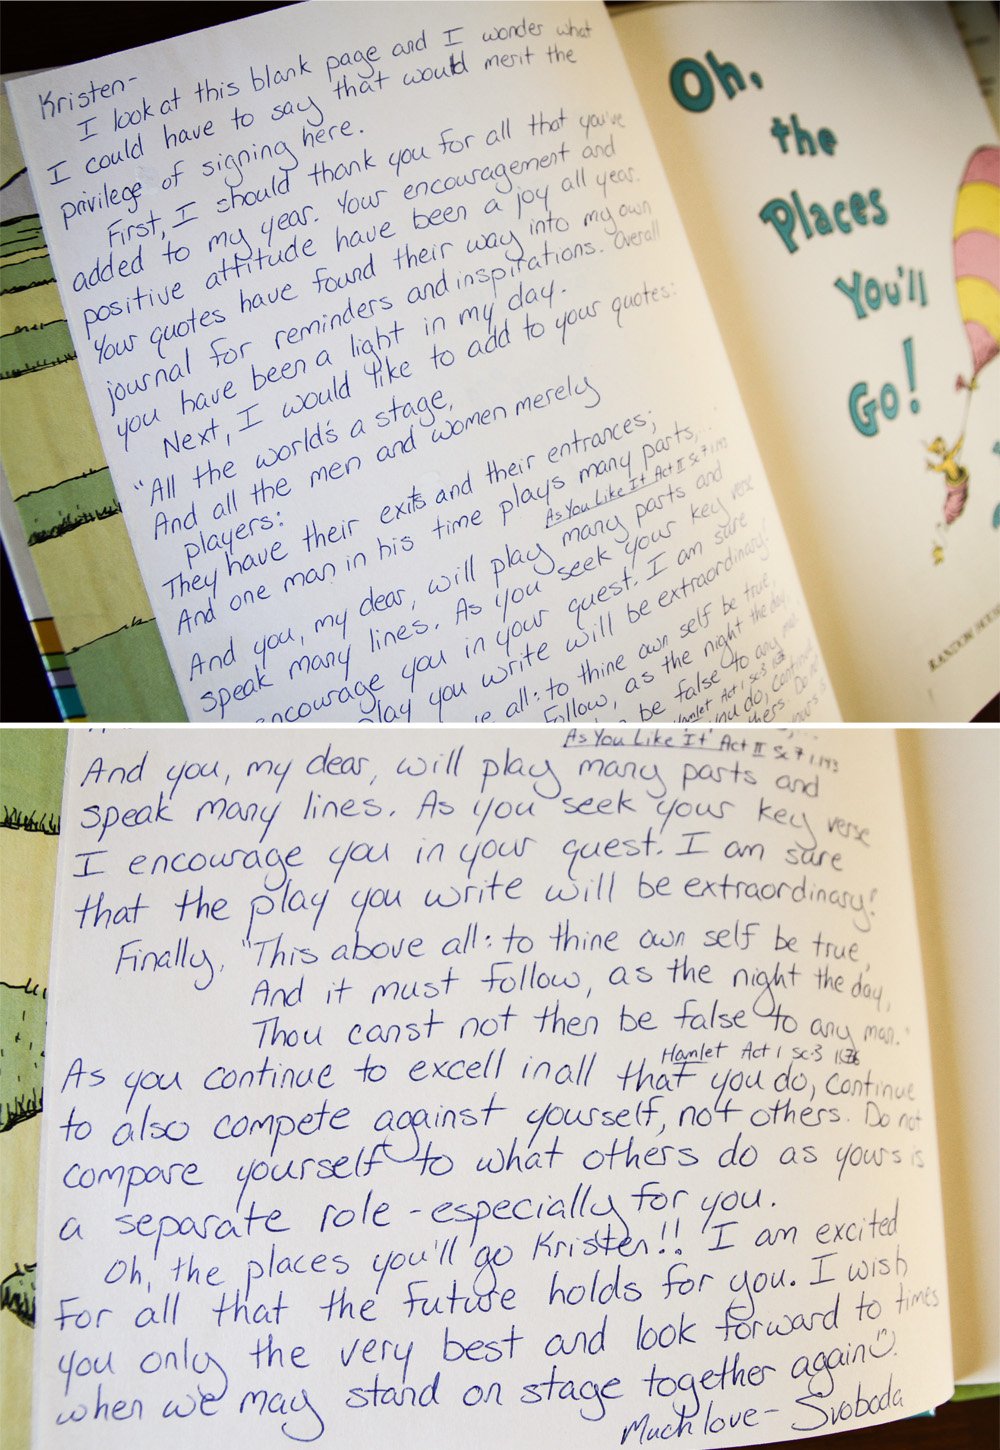 Kristen-
I look at this blank page and I wonder what
I could have to say that would merit the
privilege of signing here.
First, I should thank you for all that you've
added to my year. Your encouragement and
positive attitude have been a joy all year.
Your quotes have found their way into my own
journal for reminders and inspirations. Overall
you have been a light in my day.
Next, I would like to add to your quotes:
"All the world's a stage,
And all the men and women merely
players:
They have their exits and their entrances;
And one man in his time plays many parts,...
As You Like It Act II Sc 7, 143
And you, my dear, will play many parts and
speak many lines. As you seek your key verse
encourage you in your quest. I am sure
play you write will be extraordinary!
all: to thine own self be true,
follow, as the night the day,
be false to any man
Hamlet Act 1 Sc 3
you do, continue
others. Do not
yours is
Oh,
the
Places
You'll
Go!
RANDOM HOUSE
As You Like It Act II Sc 7, 143
And you, my dear, will play many parts and
speak many lines. As you seek your key verse
I encourage you in your quest. I am sure
that the play you write will be extraordinary!
Finally, "This above all: to thine own self be true,
And it must follow, as the night the day,
Thou canst not then be false to any man."
Hamlet Act 1 Sc-3
As you continue to excell in all that you do, continue
to also compete against yourself, not others. Do not
compare yourself to what others do as yours is
a separate role - especially for you.
Oh, the places you'll go Kristen!! I am excited
for all that the future holds for you. I wish
you only the very best and look forward to times
when we may stand on stage together again.
Much love - Svoboda